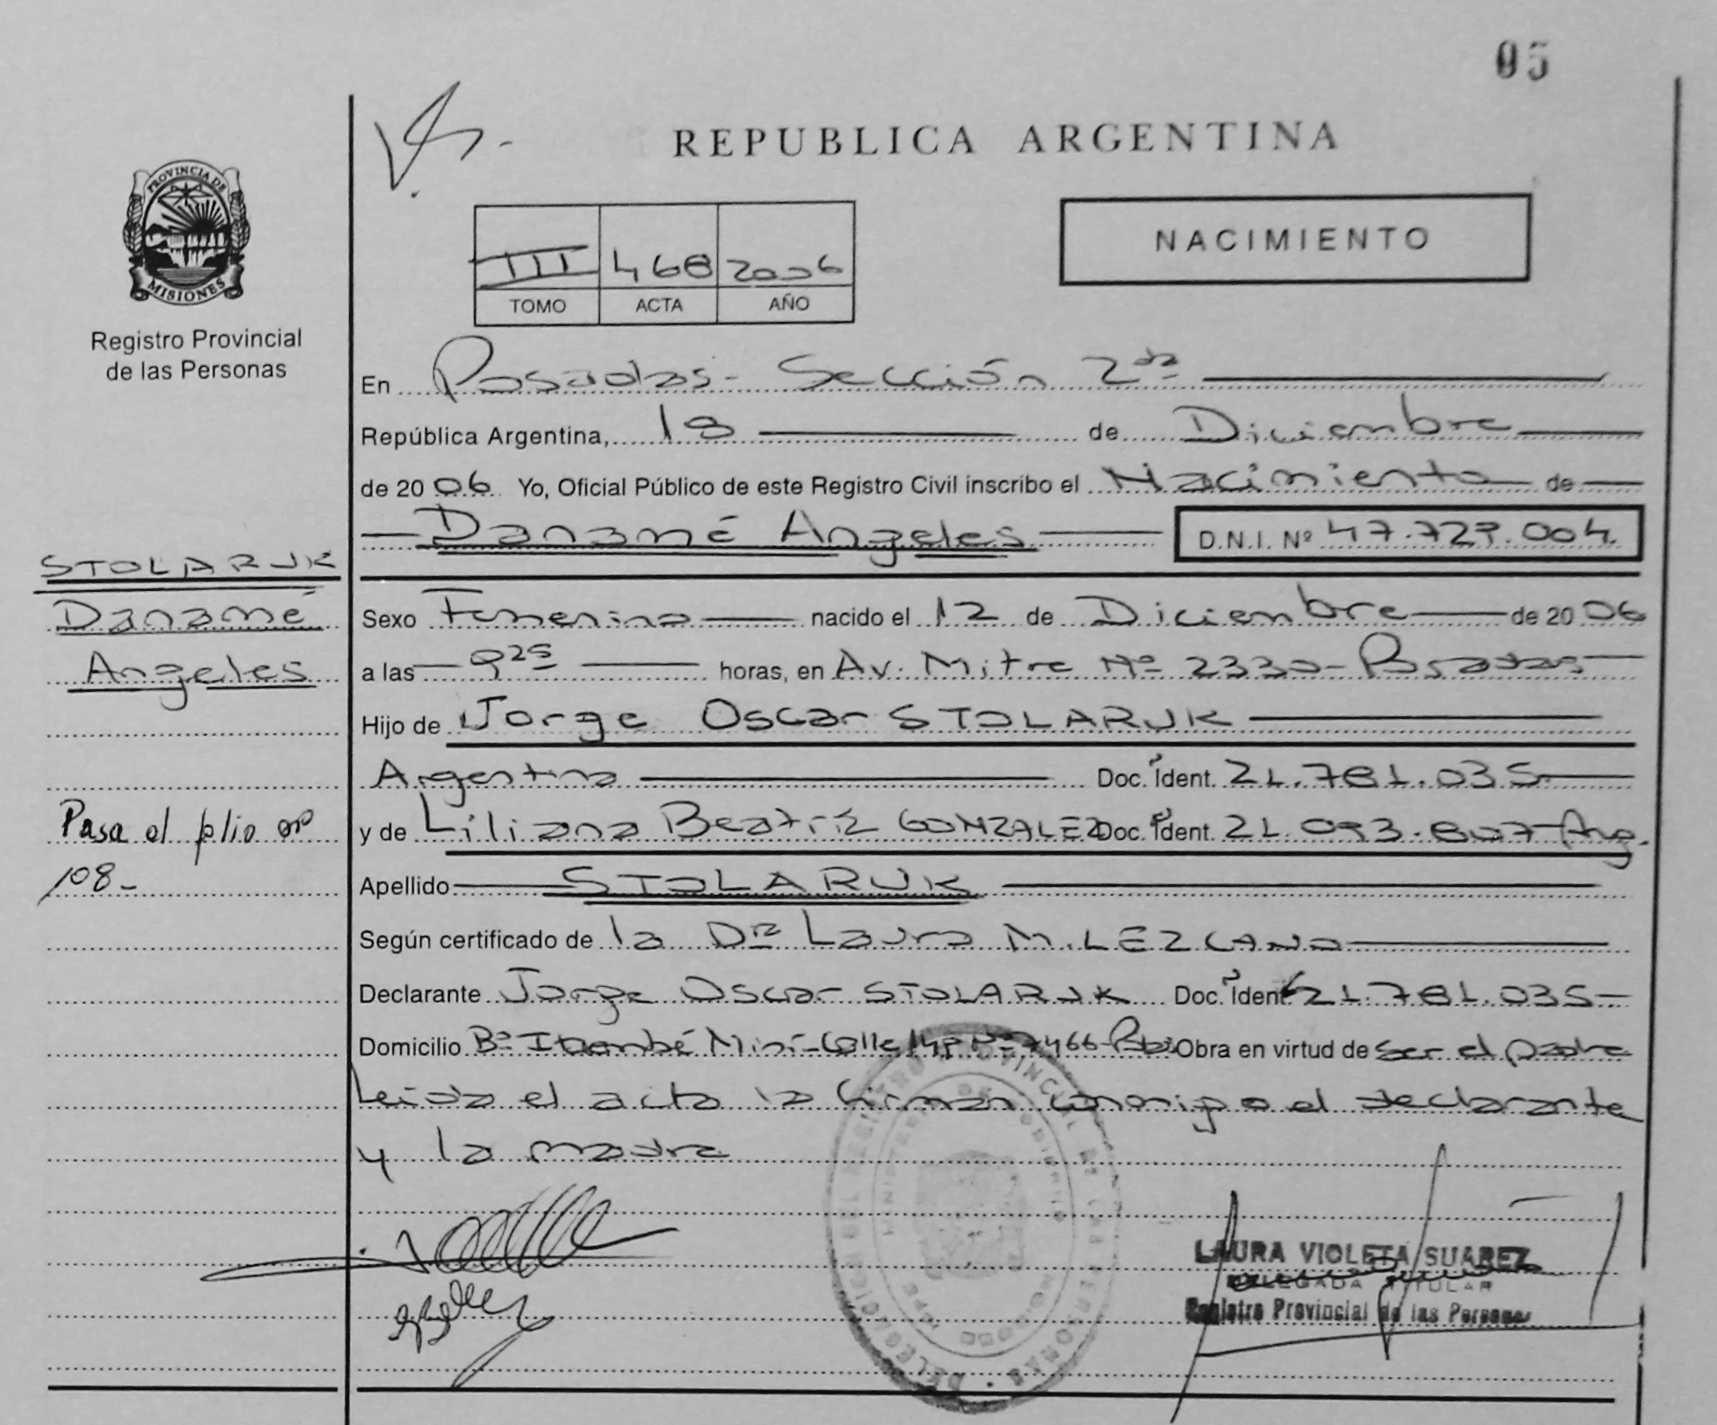 05
REPUBLICA ARGENTINA
PROVINCIA DE
MISIONES
Registro Provincial
de las Personas
NACIMIENTO
III 468 2006
TOMO ACTA AÑO
En Posadas- Sección 2da
República Argentina, 18 de Diciembre
de 2006 Yo, Oficial Público de este Registro Civil inscribo el Nacimiento de
Danamé Angeles D.N.I. Nº 47.729.004.
STOLARUK
Danamé
Angeles
Sexo Femenino nacido el 12 de Diciembre de 2006
a las 9 25 horas, en Av. Mitre Nº 2330- Posadas
Hijo de Jorge Oscar STOLARUK
Argentina Doc. Ident. 21.781.035
Pasa al folio nº
108-
y de Liliana Beatriz GONZALEZ Doc. Ident. 21.093.807 Arg.
Apellido STOLARUK
Según certificado de la Dra Laura M. LEZCANO
Declarante Jorge Oscar STOLARUK Doc. Ident 21.781.035
Domicilio Bº Itaembé Miní-Calle Nº 7466 Obra en virtud de ser el padre
Leída el acta la firman conmigo el declarante
y la madre
LAURA VIOLETA SUAREZ
DELEGADA TITULAR
Registro Provincial de las Personas